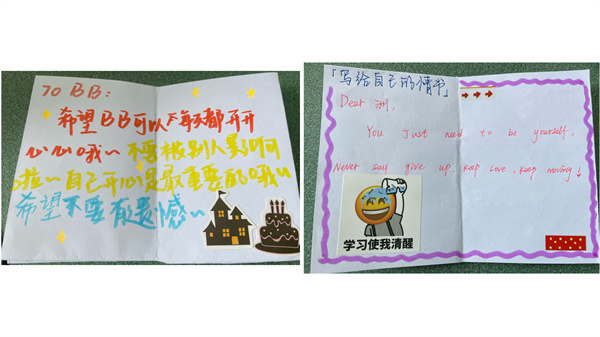 TO BB:
希望BB可以天天都开开
心心哦~不要被别人影响
啦~自己开心是最重要的哦~
希望不要有遗憾~
「写给自己的情书」
Dear 洲,
You Just need to be yourself,
Never say give up, keep love, keep moving!
学习使我清醒